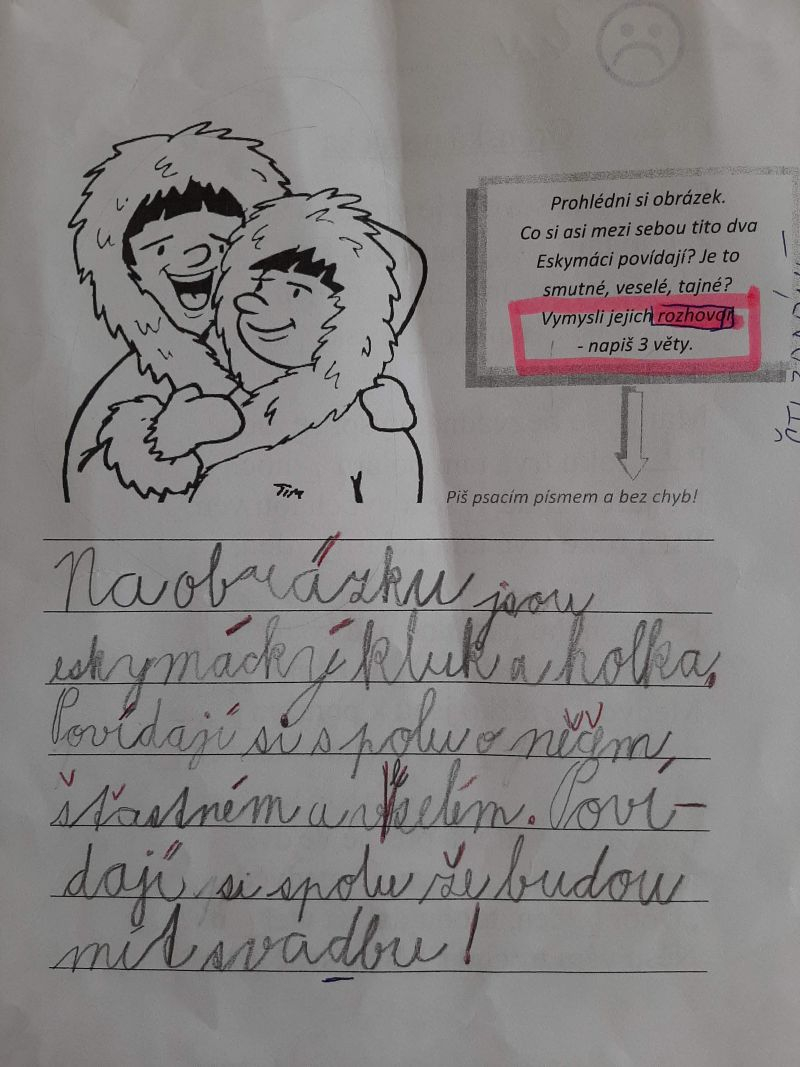 Prohlédni si obrázek.
Co si asi mezi sebou tito dva
Eskymáci povídají? Je to
smutné, veselé, tajné?
Vymysli jejich rozhovor
- napiš 3 věty.
ČTI ZADÁNÍ –
Piš psacím písmem a bez chyb!
Tim
Na obrázku jsou
eskymácký kluk a holka.
Povídají si spolu o něčem
šťastném a veselém. Poví-
dají si spolu že budou
mít svadbu!